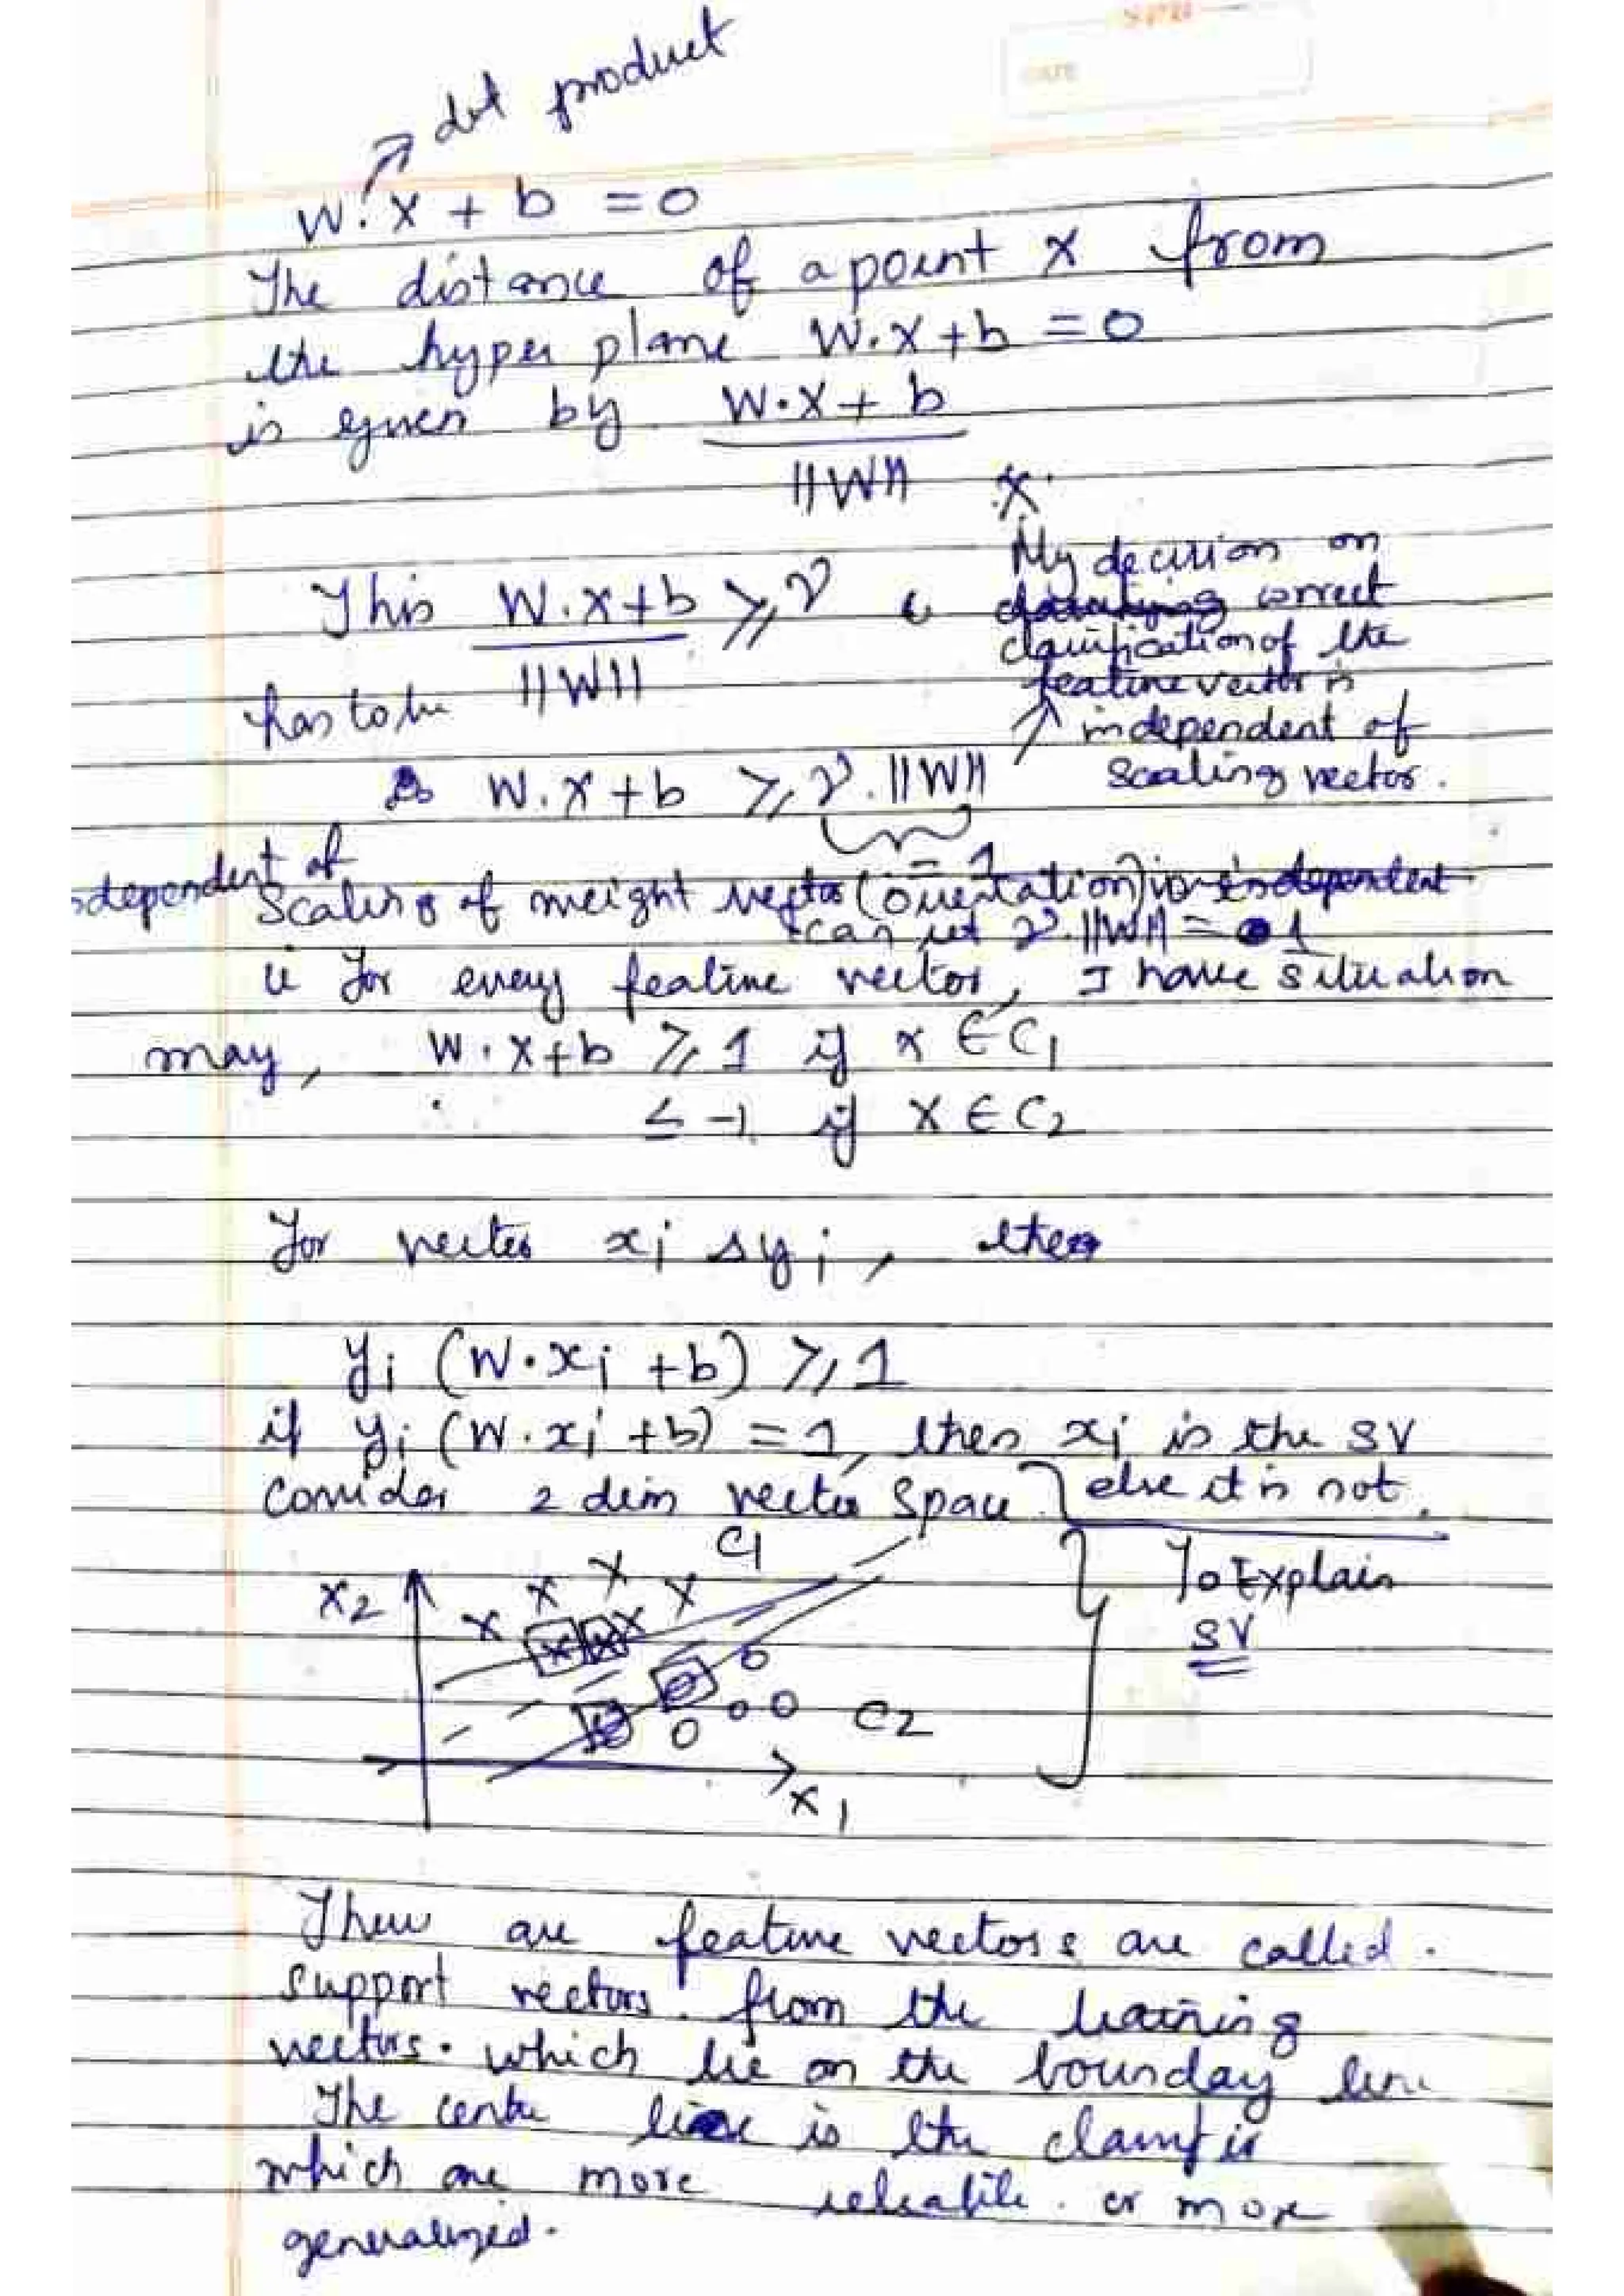 dot product
W.X + b = 0
The distance of a point X from
the hyper plane W.X+b = 0
is given by W.X + b
||W||
X
My decision on
This W.X+b ≥ γ correct
||W|| classification of the
has to be feature vector is
independent of
W.X+b ≥ γ.||W|| scaling vector.
= 1
dependent of
Scaling of weight vector (orientation) is independent
can set γ.||W|| = 1
ie for every feature vector, I have situation
may, W.X+b ≥ 1 if x ∈ C1
≤ -1 if X ∈ C2
For vector xi s yi, then
yi (W.xi + b) ≥ 1
if yi (W.xi + b) = 1, then xi is the SV
Consider 2 dim vector space. else it is not.
C1
X2
To Explain
SV
C2
X1
These are feature vectors are called.
Support vectors from the training
vectors. which lie on the boundary line
The centre line is the classifier
which are more reliable or more
generalized.